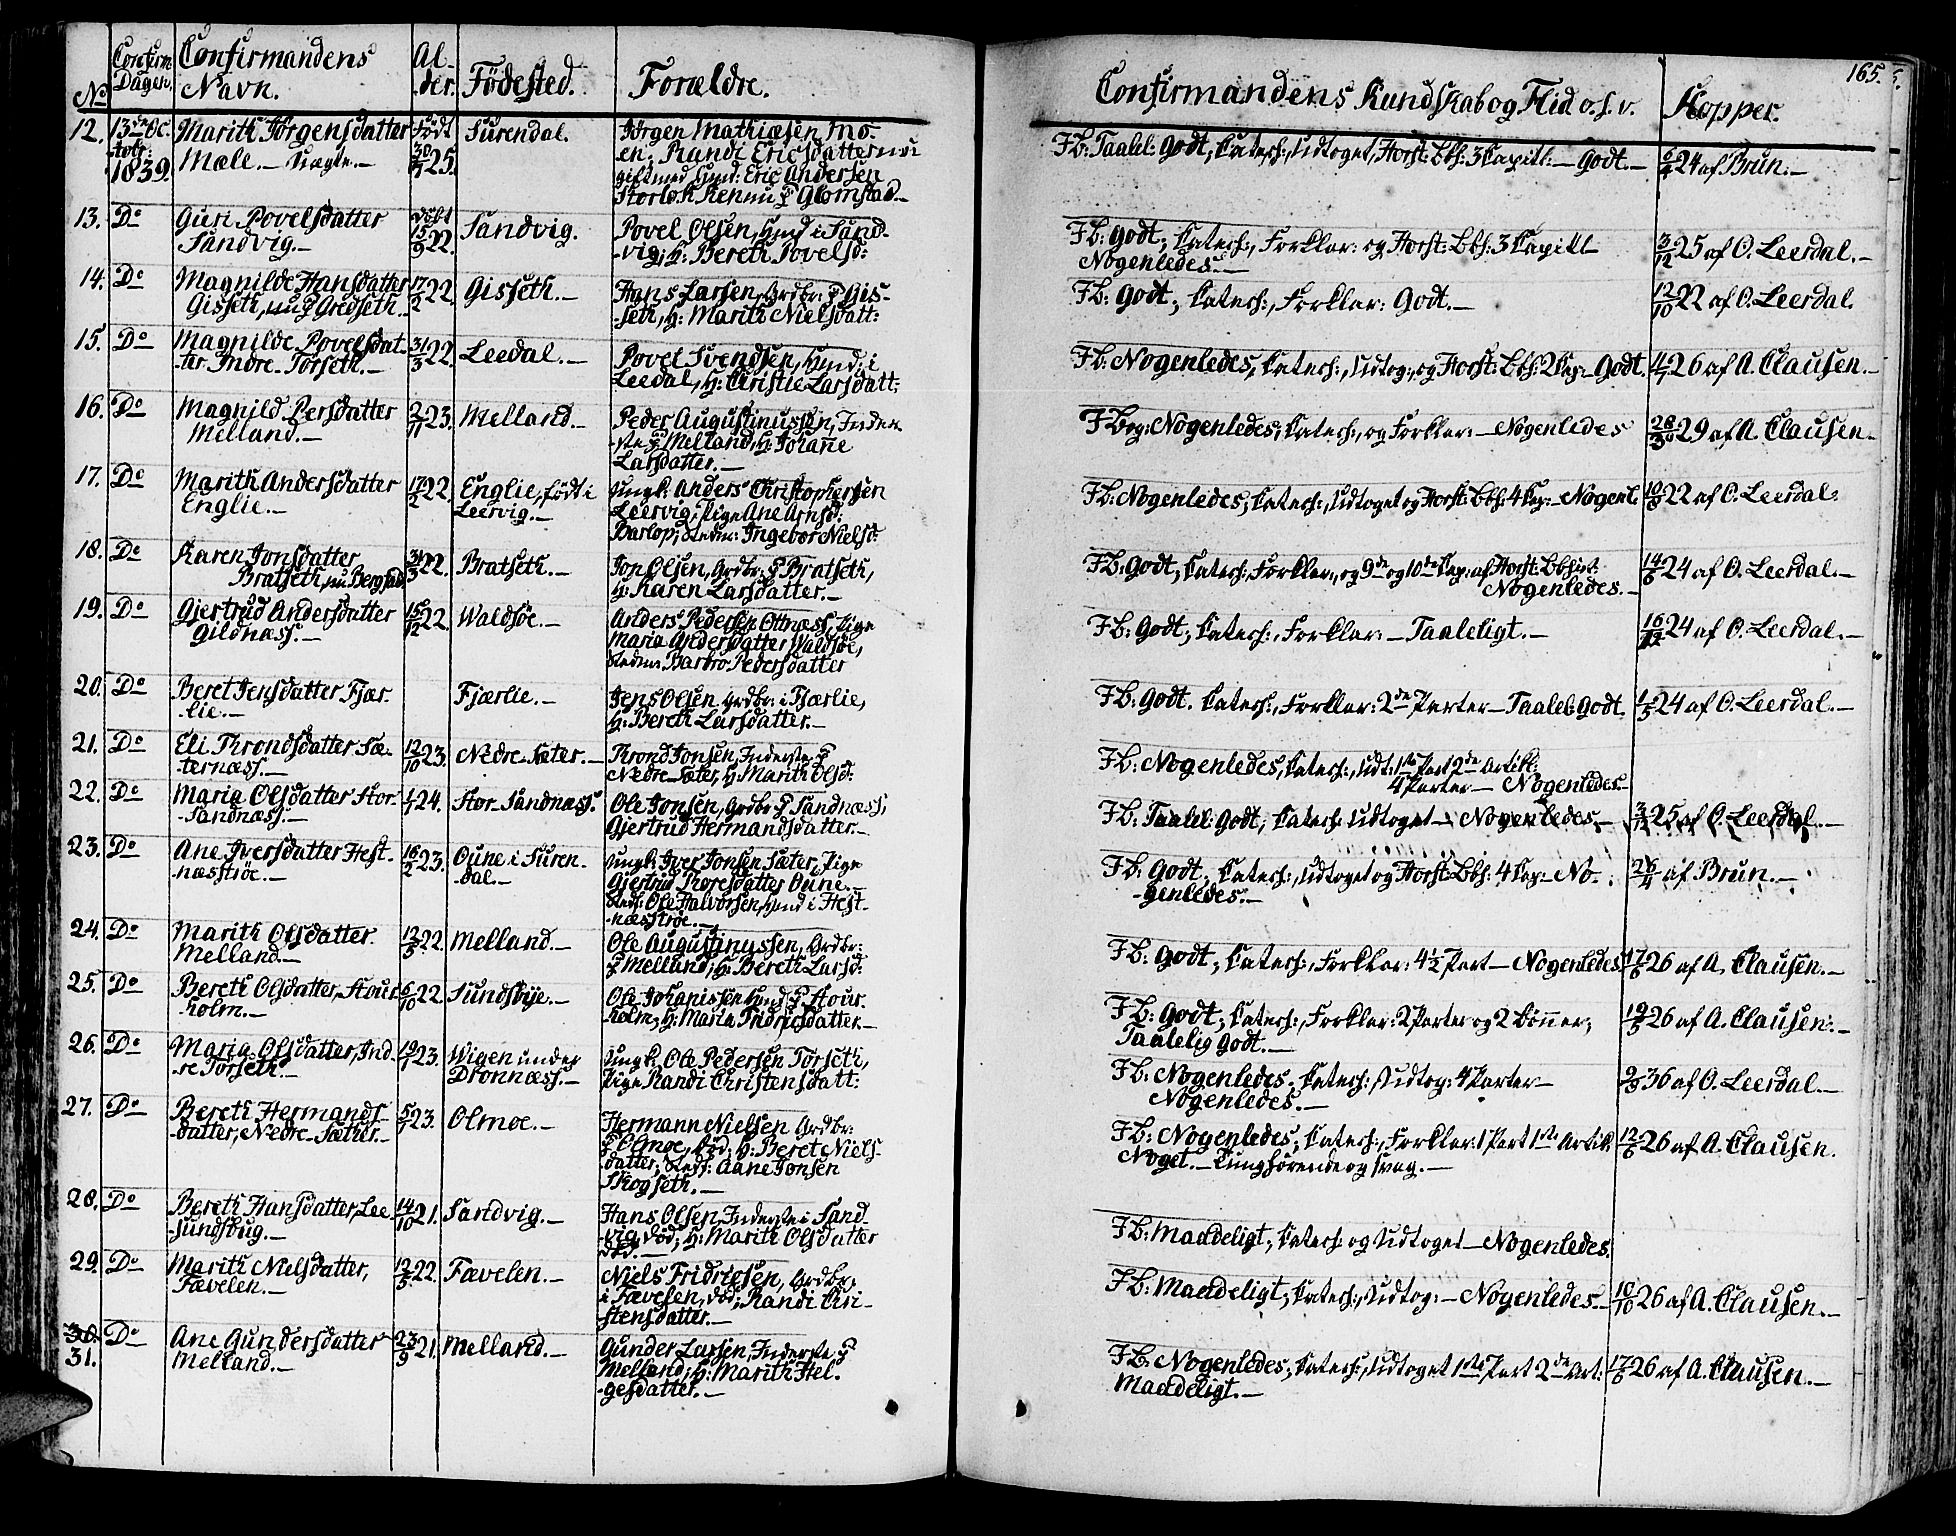 165.
No Confirm. Dagen. Confirmandens Navn. Alder. Födested. Forældre. Confirmandens Kundskab og Flid o.s.v. Kopper.
12. 13de Octobr: 1839.
Marith Jörgensdatter
Mæle.
Födt 30/7 25.
Surendal.
Jörgen Mathiæsen Mo-
en. Randi Ericsdatter nu
gift med Huusm: Eric Andersen
F.b: Taalel: Godt, Catech:, Udtoget, Horst: Bbh: 3 Capitl:— Godt.—
6/4 24 af Brun.—
13. Do
Guri Povelsdatter
Sandvig.—
Döbt 15/9 22.
Sandvig.
Povel Olsen, Huusm: i Sand-
-vig, H: Bereth Povelsd:
F.b: Godt; Catech:, Forklar: og Horst: Bbh: 3 Capitl
Nogenledes.—
3/12 25 af O. Leerdal.—
14. Do
Magnilde Hansdatter
Gisseth, nu p Gredseth.
17/2 22.
Gisseth.—
Hans Larsen, Grdbr: p Gis-
-seth, H: Marith Nielsdatt:
F.b: Godt; Catech:, Forklar: Godt.—
12/10 22 af O. Leerdal.
15. Do
Magnilde Povelsdat-
-ter Indre-Torseth.—
31/3 22.
Leedal.—
Povel Svendsen, Huusm: i
Leedal, H: Christie Larsdatt:
F.b: Nogenledes, Catech:, Udtog:, og Horst: Bbh: 2 Cap:— Godt.
26 af A. Clausen.—
16. Do
Magnild Persdatter
Melland.—
2/11 23.
Melland.—
Peder Augustinussen, Inder-
-ste p Melland, H: Johane
Larsdatter.—
F.b: Nogenledes, Catech:, og Forklar:— Nogenledes
29 af A. Clausen.
17. Do
Marith Andersdatter
Englie.—
17/2 22.
Englie, födt i
Leervig.—
Ungk: Anders Christophersen
Leervig; Pige Ane Arnsd:
Barlop; Stedm: Ingebor Nielsd:
F.b: Nogenledes; Catech:, Udtoget og Horst: Bbh: 4 Cap:— Nogenl.
22 af O. Leerdal.
18. Do
Karen Jonsdatter
Bratseth, nu Bergstad
31/3 22.
Bratseth.—
Jon Olsen, Grdbr: p Bratseth,
H: Karen Larsdatter.—
F.b: Godt, Catech:, Forklar:, og 9de og 10de Cap: af Horst: Bbhist:
Nogenledes.—
14/6 24 af O. Leerdal.—
19. Do
Gjertrud Andersdatter
Gildnæss.—
15/12 22.
Waldsöe.—
Anders Pedersen Ottnæss, Pige
Maria Andersdatter Waldsöe,
Stedm: Barbro Pedersdatter
F.b: Godt; Catech:, Forklar:— Taaleligt.—
16/12 24 af O. Leerdal.—
20. Do
Beret Jensdatter Fjær-
-lie.—
Fjærlie.—
Jens Olsen, Grdbr: i Fjærlie,
H: Bereth Larsdatter.—
F.b: Godt. Catech:, Forklar: 2de Parter— Taalel: Godt.
1/5 24 af O. Leerdal.—
21. Do
Eli Throndsdatter Sæ-
-ternæss.—
12/10 23.
Nedre-Sæter.—
Thrond Jonsen, Inderste p
Nedre-Sæter, H: Marith Olsd:
F.b: Nogenledes, Catech:, Udt: 1ste Part 2de Artikl:
4 Parter— Nogenledes—
22. Do
Maria Olsdatter Stor-
-Sandnæss.—
1/1 24.
Stor-Sandnæss.
Ole Jonsen, Grdbr p Sandnæss,
Gjertrud Hermandsdatter.—
F.b: Taalel: Godt, Catech: Udtoget— Nogenledes.—
25 af O. Leerdal.—
23. Do
Ane Iversdatter Hest-
-næsströe.—
16/2 23.
Oune i Suren-
-dal.—
Ungk: Iver Jonsen Sæter, Pige
Gjertrud Thoresdatter Oune.—
Stedf: Ole Halvorsen, Huusm: i Hest-
-næsströe.—
F.b: Godt, Catech:, Udtoget og Horst: Bbh: 4 Cap:— No-
-genledes.—
26/4 af Brun.—
24. Do
Marith Olsdatter
Melland.—
12/5 22.
Melland.—
Ole Augustinussen, Grdbr:
p Melland; H: Bereth Larsd:
F.b: Godt; Catech:, Forklar: 4½ Part— Nogenledes
17/6 26 af A. Clausen.—
25. Do
Bereth Olsdatter, Stour-
-holm.—
6/10 22.
Sundsbye.—
Ole Johanissen Huusm: p Stour-
-holm, H: Maria Fridricsdatter.—
F.b: Godt; Catech:, Forklar: 2 Parter og 2 Bönner;
Taalelig Godt.—
19/5 26 af A. Clausen.—
26. Do
Maria Olsdatter, Ind-
-re Torseth.—
19/1 23.
Wigen under
Dronnæss.—
Ungk: Ole Pedersen Torseth,
Pige Randi Christensdatt:
F.b: Nogenledes. Catech:, Udtog: 4 Parter—
Nogenledes.—
2/9 36 af O. Leerdal.—
27. Do
Bereth Hermands-
-datter, Nedre-Sæther.—
5/7 23.
Olmoe.—
Hermann Nielsen Grdbr:
p Olmoe, död; H: Beret Niels-
-datter; Stedf: Aane Jonsen
Skogseth.—
F.b: Nogenledes; Catech:, Forklar: 1 Part 1ste Artik
Noget.— Tunghörende og svag.—
12/6 26 af A. Clausen.
28. Do
Bereth Hansdatter, Lee-
-sundsbug.—
14/10 21.
Sandvig.—
Hans Olsen, Inderste i Sand-
-vig, död; H: Marith Olsdatter
död.—
F.b: Maadeligt; Catech: og Udtoget— Nogenledes.
29. Do
Marith Nielsdatter,
Fævelen.—
12/5 22.
Fævelen.—
Niels Fridricsen, Grdbr:
i Fævelen, död; Randi Chri-
-stensdatter.—
F.b: Maadeligt; Catech:, Udtog:— Nogenledes.—
10/10 26 af A. Clausen.—
30.
31. Do
Ane Gundersdatter
Melland.—
23/9 21.
Melland.—
Gunder Larsen, Inderste p
Melland; H: Marith Hel-
-gesdatter.—
F.b: Nogenledes, Catech:, Udtoget 1ste Part 2de Art:
Maadeligt.—
17/6 26 af A. Clausen.—